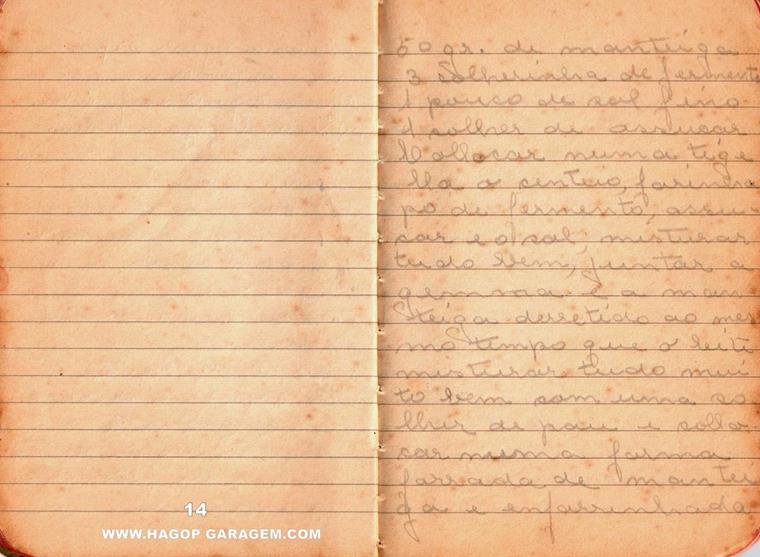 14
WWW.HAGOP GARAGEM.COM
50 gr. de manteiga
3 Colherinha de fermento
1 pouco de sal fino
1 colher de assucar
Collocar numa tige
lla o centeio, farinha
po de fermento, assu-
car e o sal, misturar
tudo bem, juntar a
gemma e a man
teiga derretido ao mes
mo tempo que o leite
misturar tudo mui
to bem com uma co
lher de pau e collo
car numa forma
forrada de mantei
ga e enfarinhada